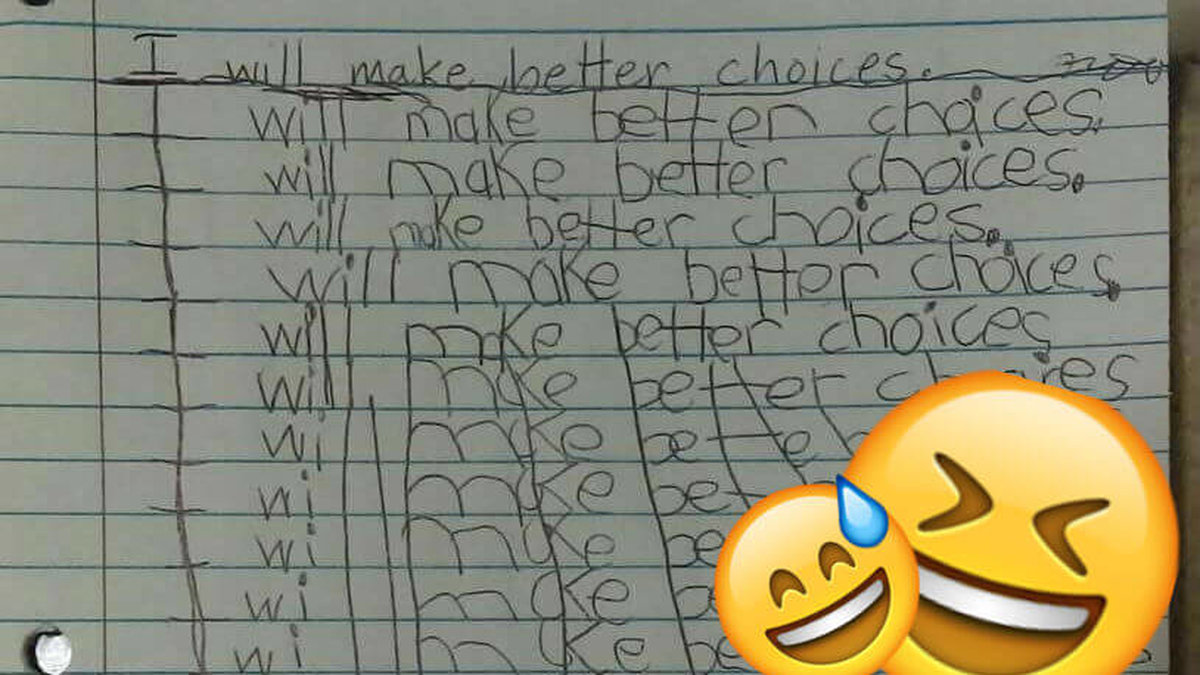 I will make better choices.
I will make better choices.
I will make better choices.
I will make better choices.
I will make better choices.
I will make better choices
I will make better
I will make bette
I will make bet
I will make be
I will make
I will make be